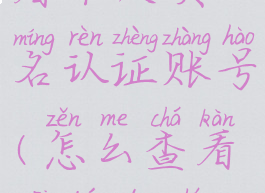 míng rèn zhèng zhàng hào
名认证账号
zěn me chá kàn
（怎么查看